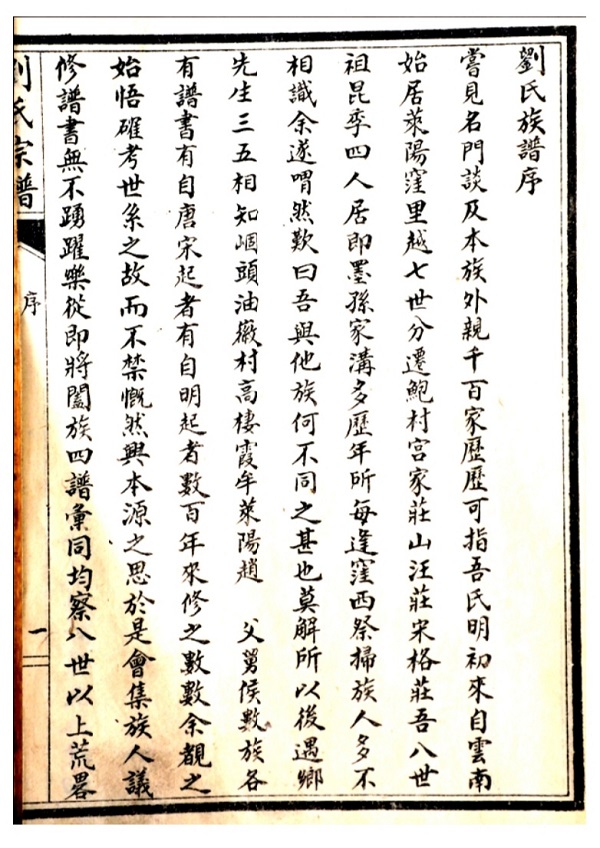 劉氏族譜序
嘗見名門談及本族外親千百家歷歷可指吾氏明初來自雲南
始居萊陽窪里越七世分遷鮑村宫家莊山汪莊宋格莊吾八世
祖昆季四人居即墨孫家溝多歷年所每逢窪西祭掃族人多不
相識余遂喟然歎曰吾與他族何不同之甚也莫解所以後遇鄉
先生三五相知崓頭油㣲村高棲霞牟萊陽趙 父舅侯數族各
有譜書有自唐宋起者有自明起者數百年來修之數數余覩之
始悟確考世系之故而不禁慨然興本源之思於是會集族人議
修譜書無不踴躍樂從即將闔族四譜彙同均察八世以上荒畧
劉氏宗譜
序
一